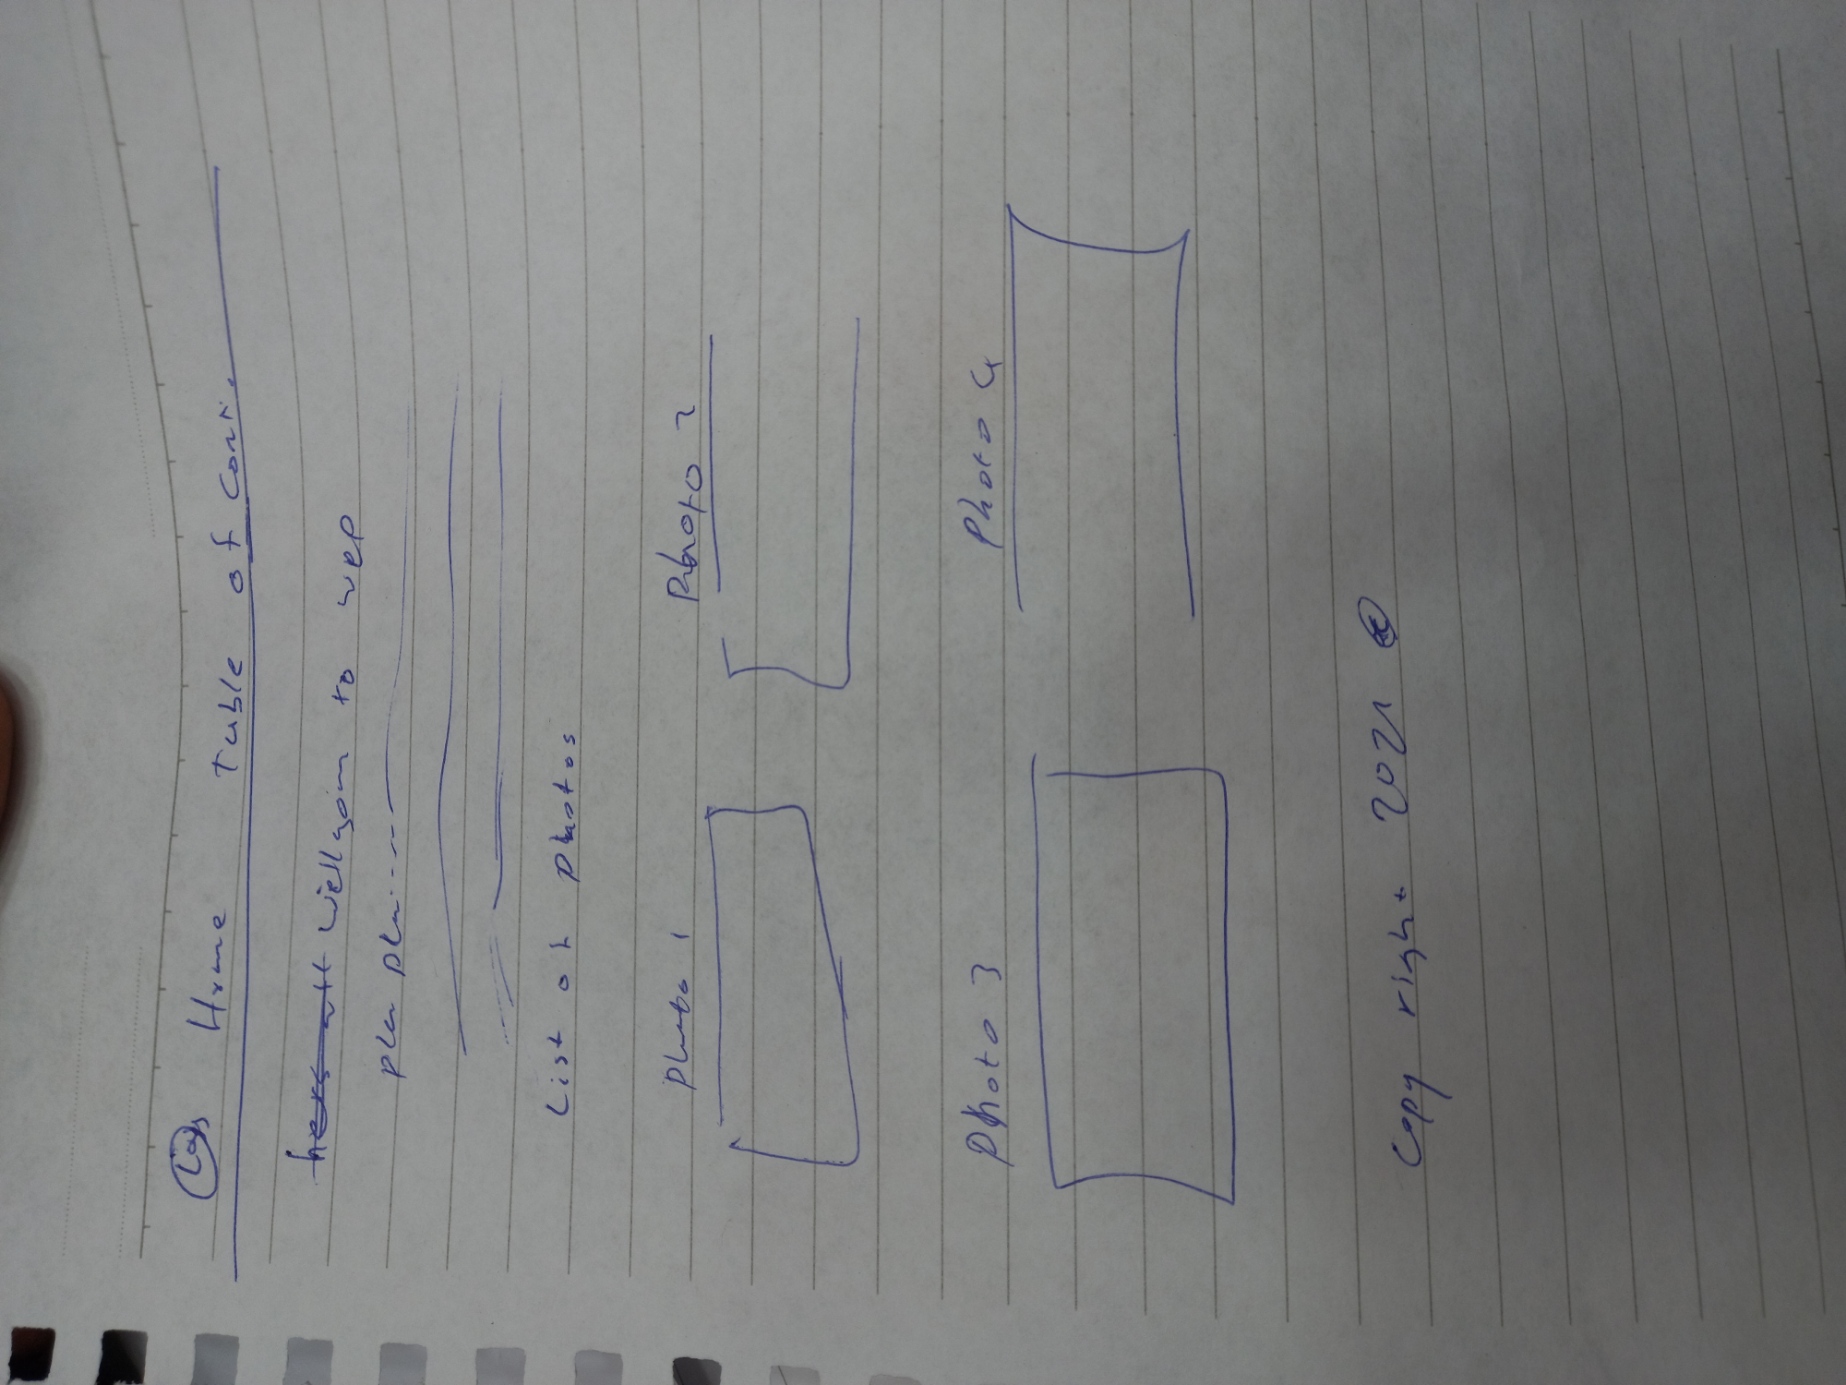 Home Table of Cont.
Wellgom to wep
pla pla....---
List of photos
Photo 1 Photo 2
Photo 3 Photo 4
Copy right 2021 ©